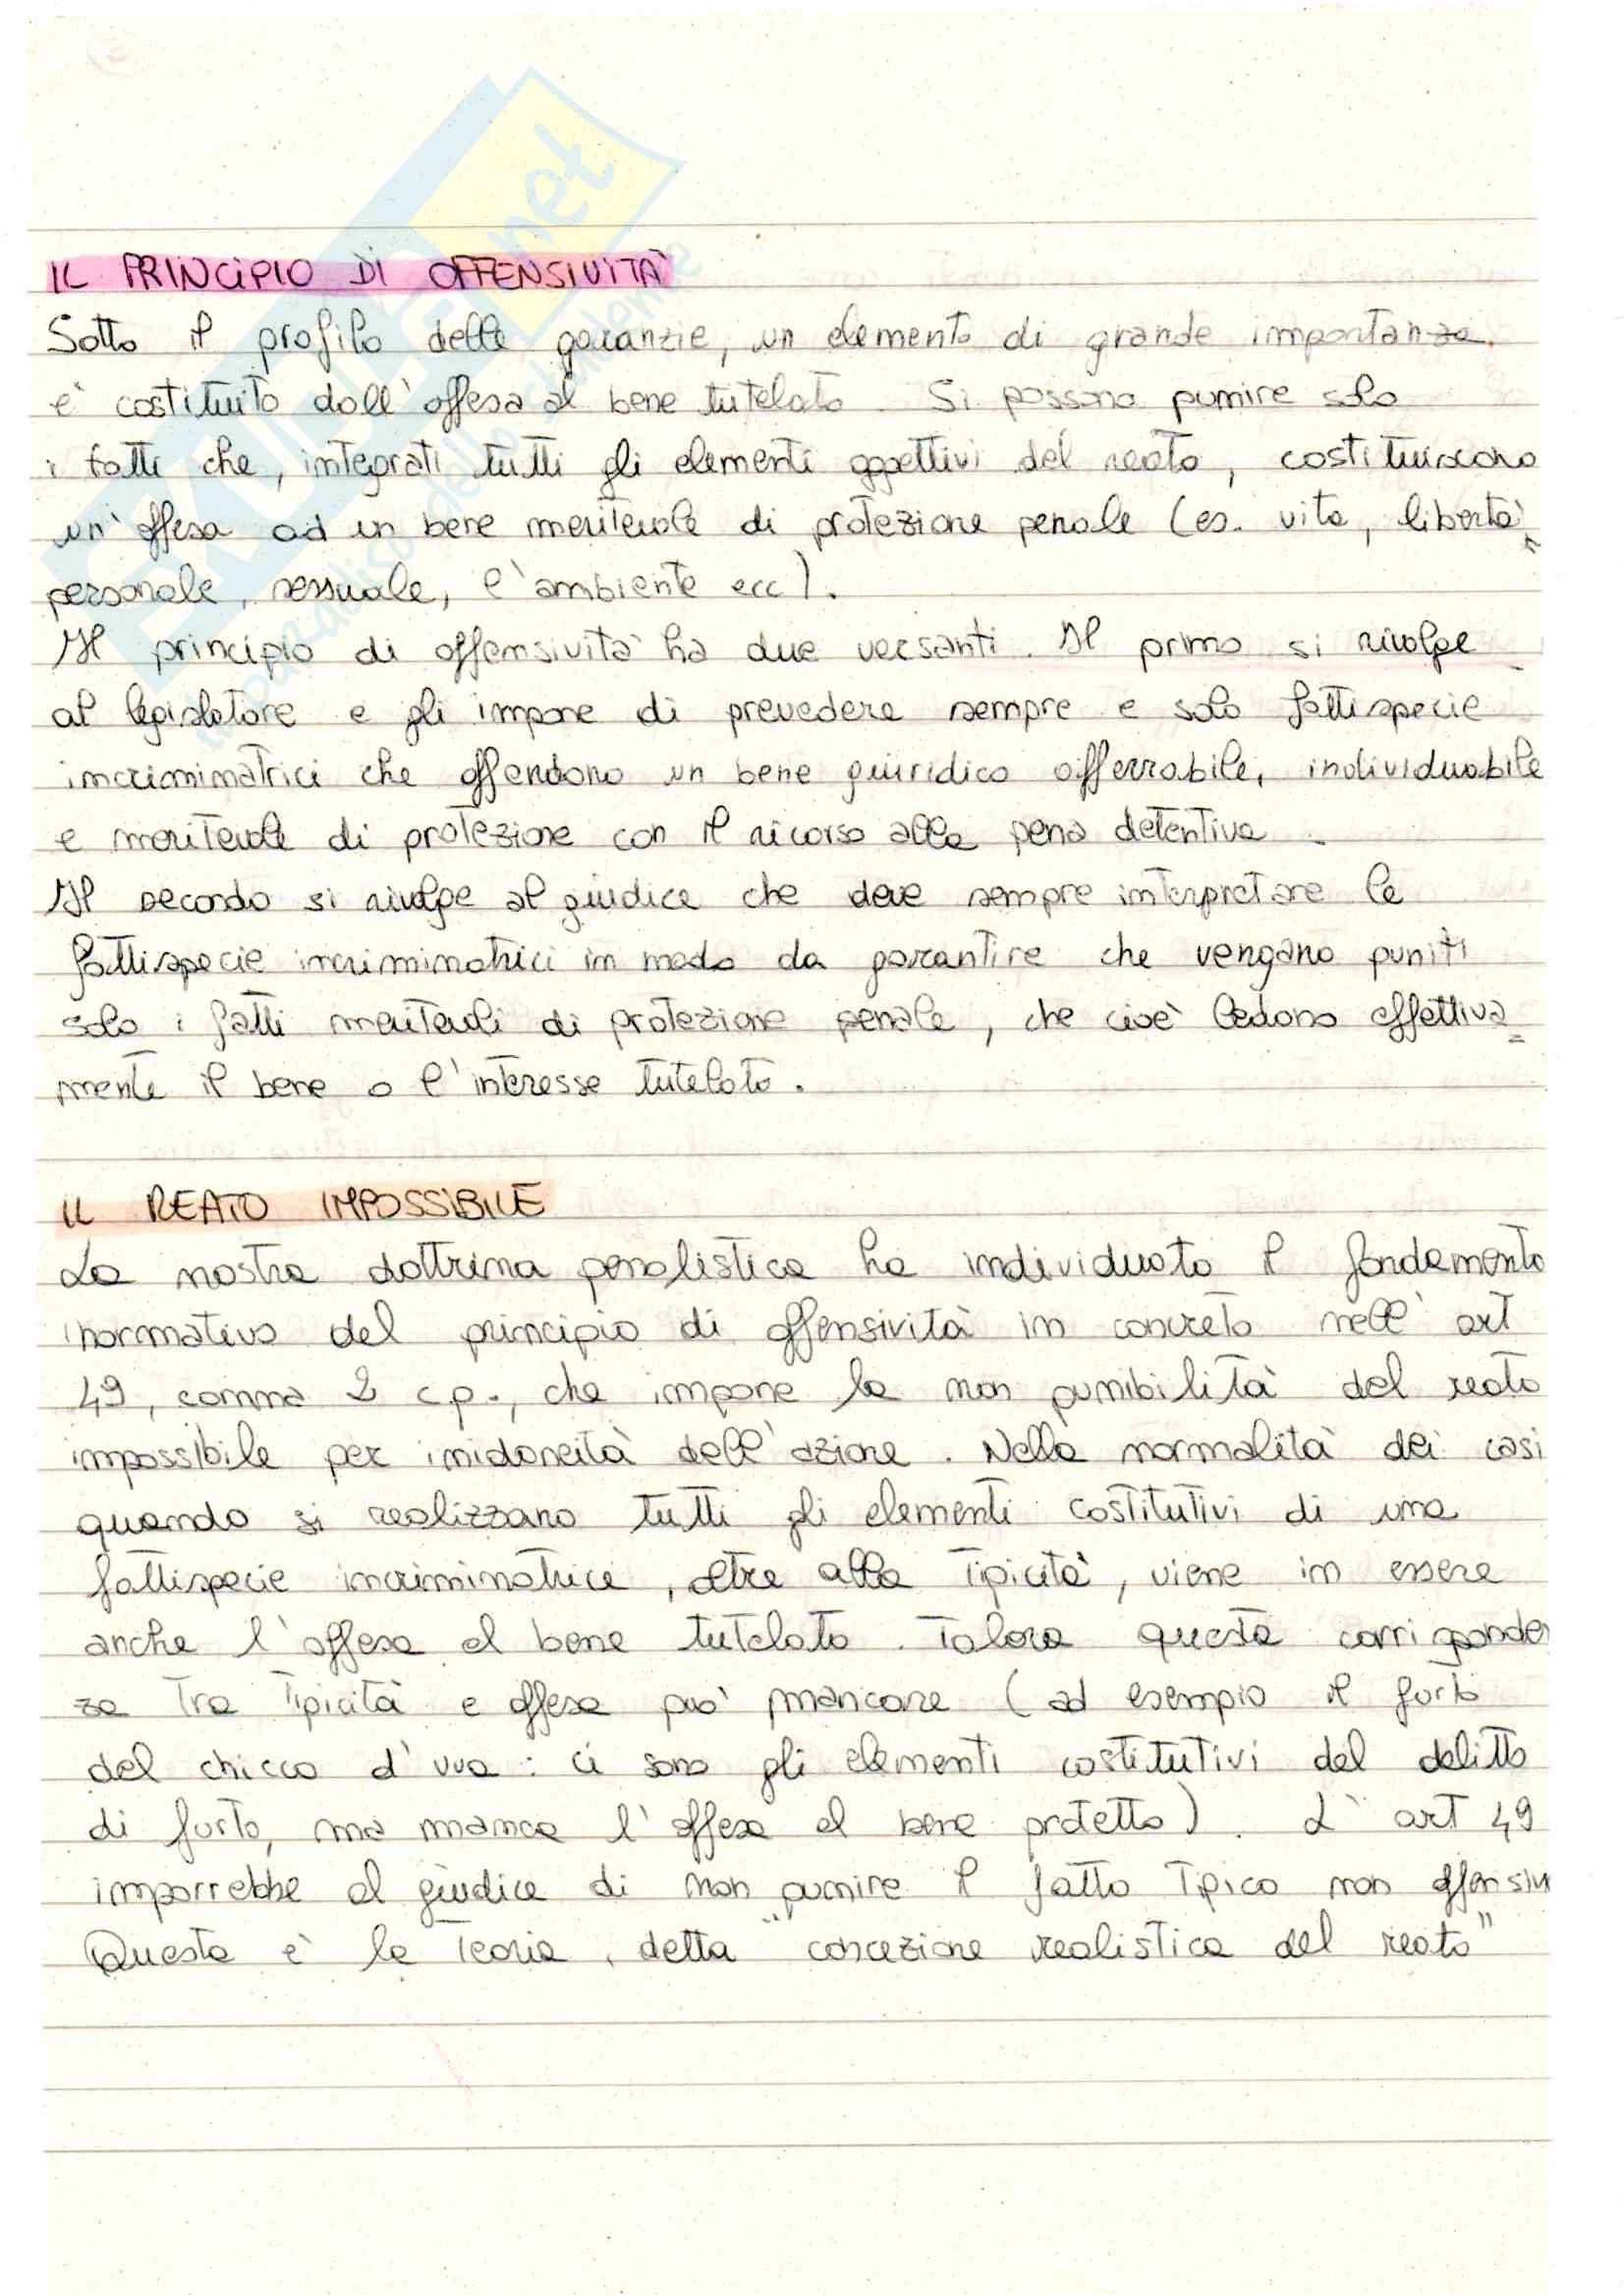 IL PRINCIPIO DI OFFENSIVITÀ
Sotto il profilo delle garanzie, un elemento di grande importanza
è costituito dall'offesa al bene tutelato. Si possono punire solo
i fatti che, integrati tutti gli elementi oggettivi del reato, costituiscono
un'offesa ad un bene meritevole di protezione penale (es. vita, libertà
personale, sessuale, l'ambiente ecc).
Il principio di offensività ha due versanti. Il primo si rivolge
al legislatore e gli impone di prevedere sempre e solo fattispecie
incriminatrici che offendono un bene giuridico afferrabile, individuabile
e meritevole di protezione con il ricorso alla pena detentiva.
Il secondo si rivolge al giudice che deve sempre interpretare le
fattispecie incriminatrici in modo da garantire che vengano puniti
solo i fatti meritevoli di protezione penale, che cioè ledono effettiva=
mente il bene o l'interesse tutelato.
IL REATO IMPOSSIBILE
La nostra dottrina penalistica ha individuato il fondamento
normativo del principio di offensività in concreto nell'art
49, comma 2 c.p., che impone la non punibilità del reato
impossibile per inidoneità dell'azione. Nella normalità dei casi
quando si realizzano tutti gli elementi costitutivi di una
fattispecie incriminatrice, oltre alla tipicità, viene in essere
anche l'offesa al bene tutelato. Talora questa corrisponden
za tra tipicità e offesa può mancare (ad esempio il furto
del chicco d'uva: ci sono gli elementi costitutivi del delitto
di furto, ma manca l'offesa al bene protetto). L'art 49
imporrebbe al giudice di non punire il fatto tipico non offensiv
Questa è la teoria, detta "concezione realistica del reato"